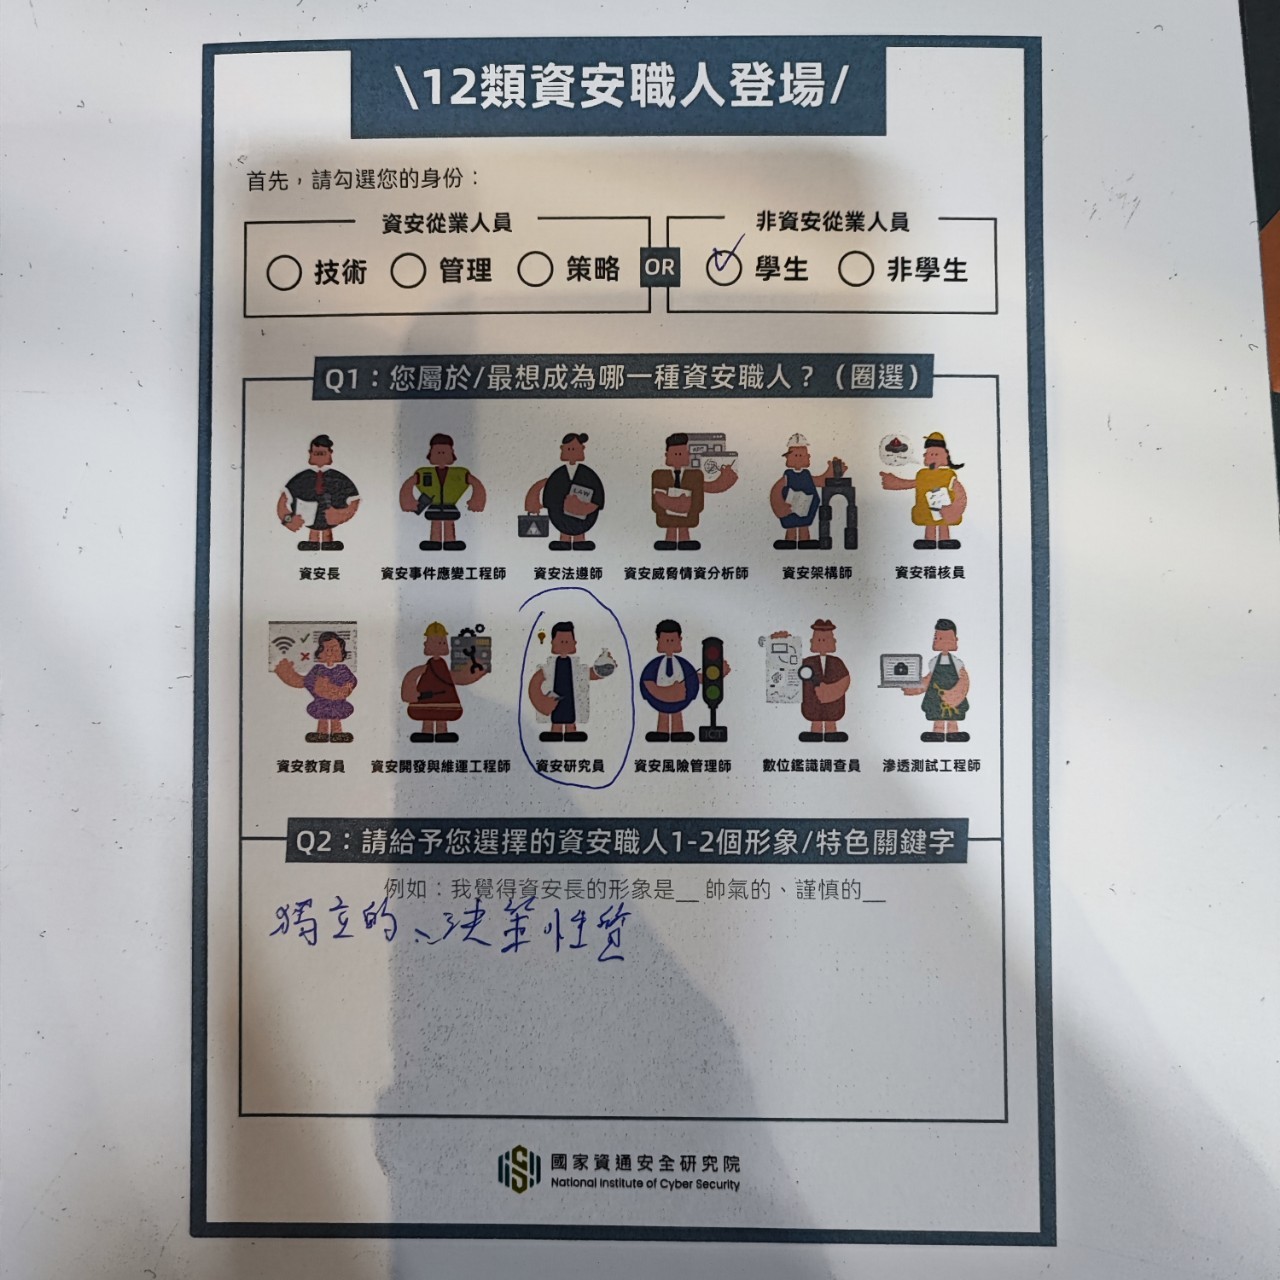 \12類資安職人登場/
首先，請勾選您的身份：
資安從業人員
非資安從業人員
技術 管理 策略 OR 學生 非學生
Q1：您屬於/最想成為哪一種資安職人？（圈選）
LAW
資安長 資安事件應變工程師 資安法遵師 資安威脅情資分析師 資安架構師 資安稽核員
ICT
資安教育員 資安開發與維運工程師 資安研究員 資安風險管理師 數位鑑識調查員 滲透測試工程師
Q2：請給予您選擇的資安職人1-2個形象/特色關鍵字
例如：我覺得資安長的形象是__ 帥氣的、謹慎的__
獨立的、決策性質
國家資通安全研究院
National Institute of Cyber Security